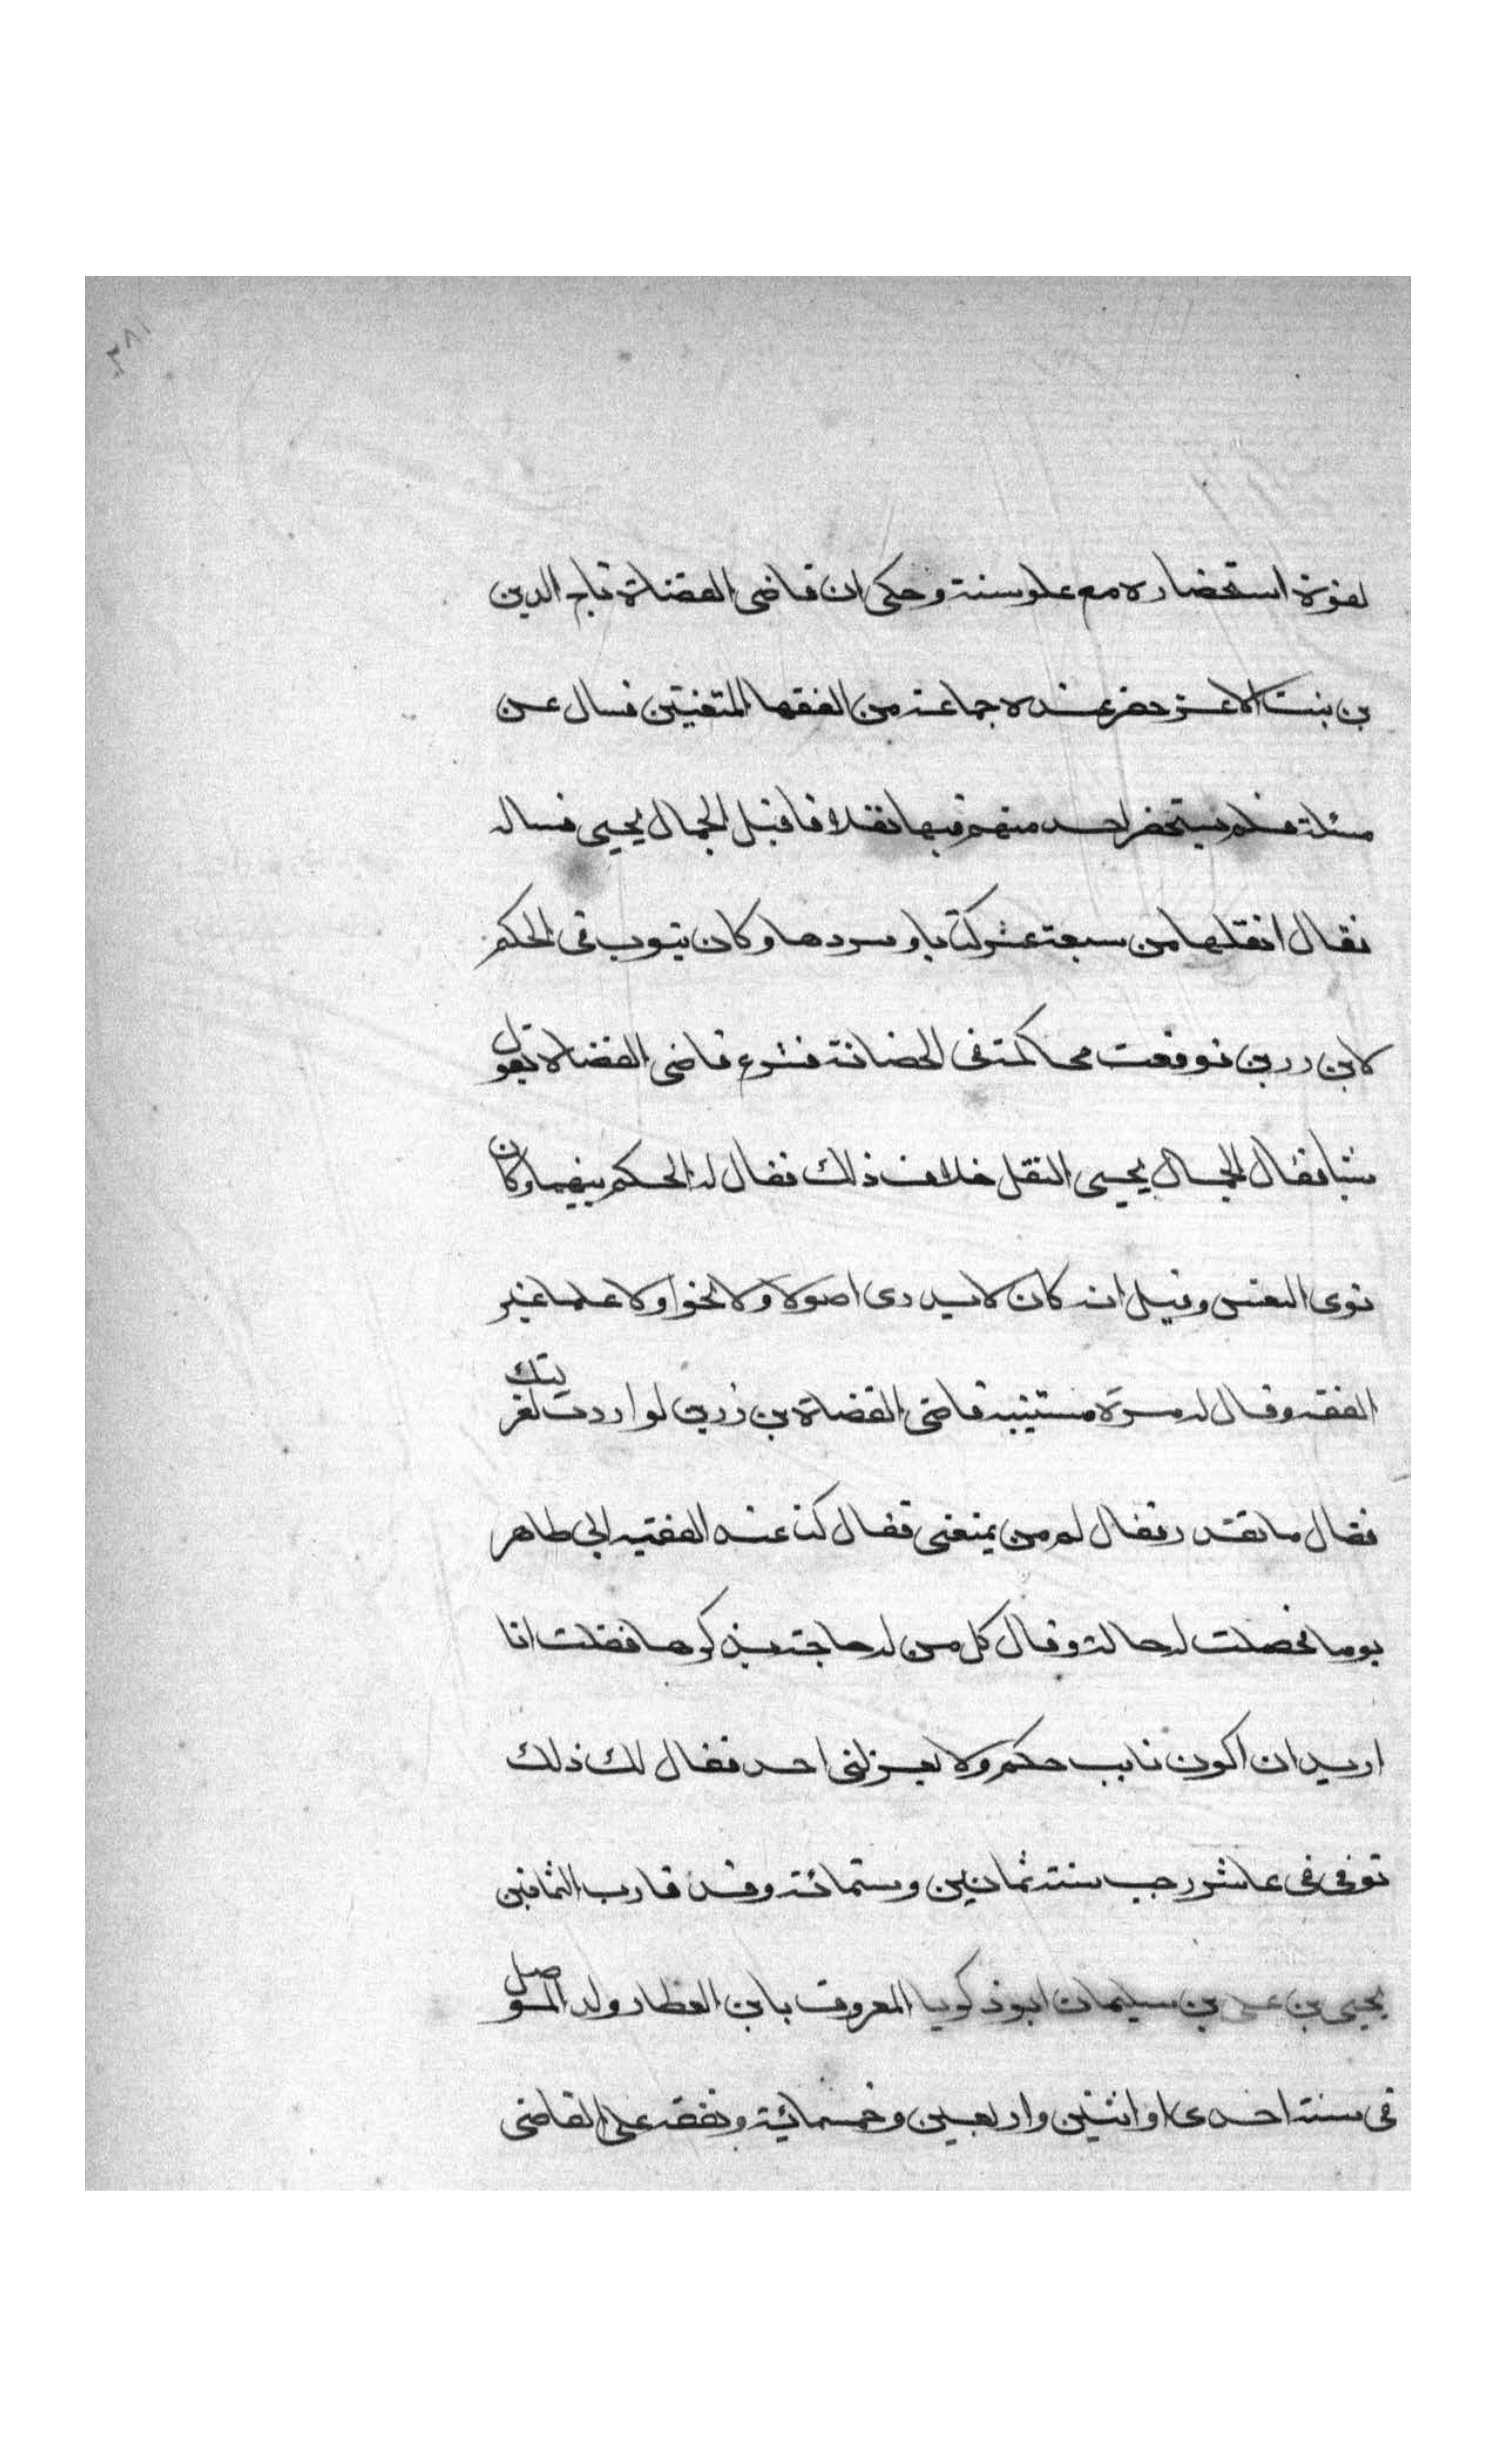 ٢٨١
لقوة استحضاره مع علو سنه وحكى ان قاضى القضاة تاج الدين
بن بنت الاعز حضر عنده جماعة من الفقها المتعنيين فسال عن
مسئلة فلم يستحضر احد منهم فيها نقلا فاقبل الجمال يحيى فساله
فقال انقلها من سبعة عشر كتابا وسردها وكان ينوب فى الحكم
لابن رزين فوقعت محاكمة فى الحضانة فشرع قاضى القضاة يقول
شيا فقال الجمال يحيى النقل خلاف ذلك فقال له الحكم بينهما وكان
قوى النفس وقيل انه كان لا يدرى اصولا ولا نحوا ولا علما غير
الفقه وقال له مرة مستنيبه قاضى القضاة بن رزين لو اردت لعزلتك
فقال ما تقدر فقال له من يمنعنى فقال كنا عند الفقيه ابى طاهر
يوما فحصلت له حالة وقال كل من له حاجة يذكرها فقلت انا
اريد ان اكون نايب حكم ولا يعزلنى احد فقال لك ذلك
توفى فى عاشر رجب سنة ثمانين وستمائة وقد قارب الثمانين
يحيى بن على بن سليمان ابو زكريا المعروف بابن العطار ولد الموصل
فى سنة احدى او اثنتين واربعين وخمسمائة وتفقه على القاضى